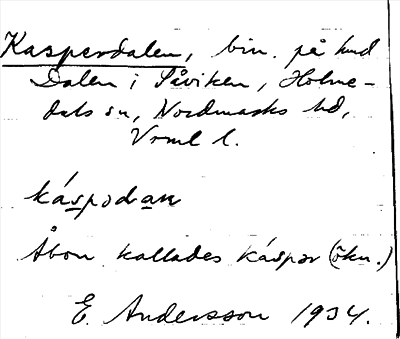 Kasperdalen, bin. på hmd
Dalen i Påviken, Holme-
dals sn, Nordmarks hd,
Vrml l.
káspədan
Åbon kallades káspər (ökn.)
E. Andersson 1934.